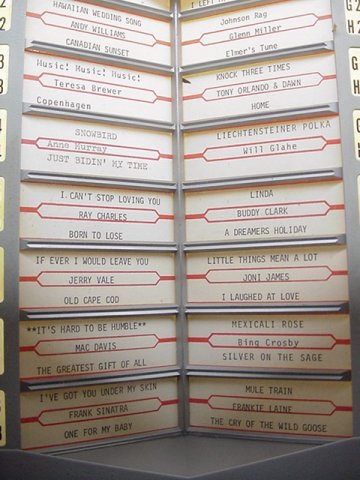 HAWAIIAN WEDDING SONG
ANDY WILLIAMS
CANADIAN SUNSET
Music! Music! Music!
Teresa Brewer
Copenhagen
SNOWBIRD
Anne Murray
JUST BIDIN' MY TIME
I CAN'T STOP LOVING YOU
RAY CHARLES
BORN TO LOSE
IF EVER I WOULD LEAVE YOU
JERRY VALE
OLD CAPE COD
**IT'S HARD TO BE HUMBLE**
MAC DAVIS
THE GREATEST GIFT OF ALL
I'VE GOT YOU UNDER MY SKIN
FRANK SINATRA
ONE FOR MY BABY
Johnson Rag
Glenn Miller
Elmer's Tune
KNOCK THREE TIMES
TONY ORLANDO & DAWN
HOME
LIECHTENSTEINER POLKA
Will Glahe
LINDA
BUDDY CLARK
A DREAMERS HOLIDAY
LITTLE THINGS MEAN A LOT
JONI JAMES
I LAUGHED AT LOVE
MEXICALI ROSE
Bing Crosby
SILVER ON THE SAGE
MULE TRAIN
FRANKIE LAINE
THE CRY OF THE WILD GOOSE